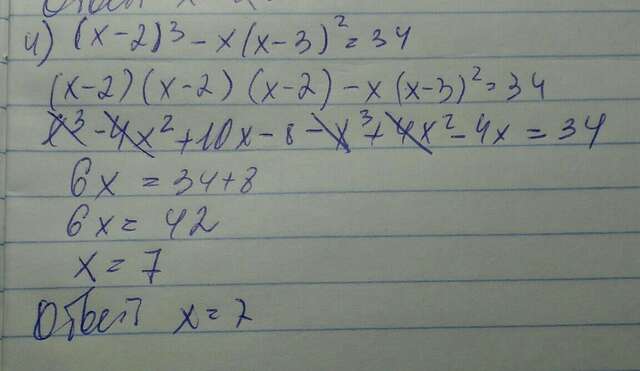 Ответ x=
4) (x-2)³ - x(x-3)² = 34
(x-2)(x-2)(x-2) - x(x-3)² = 34
x³ - 4x² + 10x - 8 - x³ + 4x² - 4x = 34
6x = 34+8
6x = 42
x = 7
Ответ x = 7